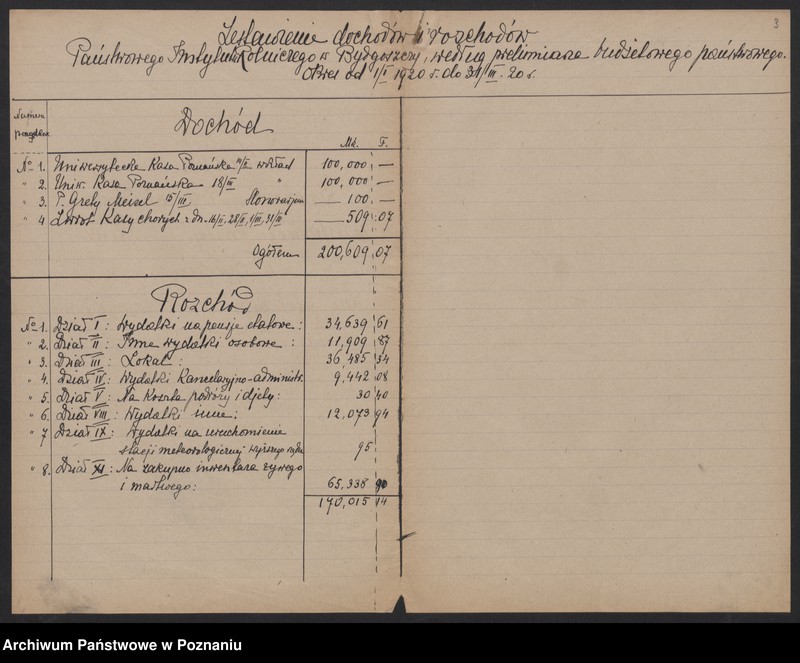 3
Zestawienie dochodów i rozchodów
Państwowego Instytutu Rolniczego w Bydgoszczy, według preliminarza budżetowego państwowego.
Okres od 1/I 1920 r. do 31/III. 20 r.
Numer
porządkow.
Dochód
Mk. F.
No 1. Uniwersytecka Kasa Poznańska 11/II wkład 100,000 —
" 2. Uniw. Kasa Poznańska 18/III " 100,000 —
" 3. P. Grety Meisel 15/III — 100 —
" 4 Zwrot Kasy chorych z dn. 16/II, 28/II, 1/III, 31/III — 509 07
Ogółem 200,609 07
Rozchód
No 1. Dział I: Wydatki na pensje etatowe: 34,639 61
" 2. Dział II: Inne wydatki osobowe: 11,909 87
" 3. Dział III: Lokal: 36,485 34
" 4. Dział IV: Wydatki Kancelaryjno-administr. 9,442 08
" 5. Dział V: Na Koszta podróży i djety: 30 40
" 6. Dział VIII: Wydatki inne: 12,073 94
" 7 Dział IX: Wydatki na uruchomienie
stacji meteorologicznej wyższego rzędu 95
" 8. Dział XI: Na zakupno inwentarza żywego
i martwego: 65,338 90
170,015 14
Archiwum Państwowe w Poznaniu